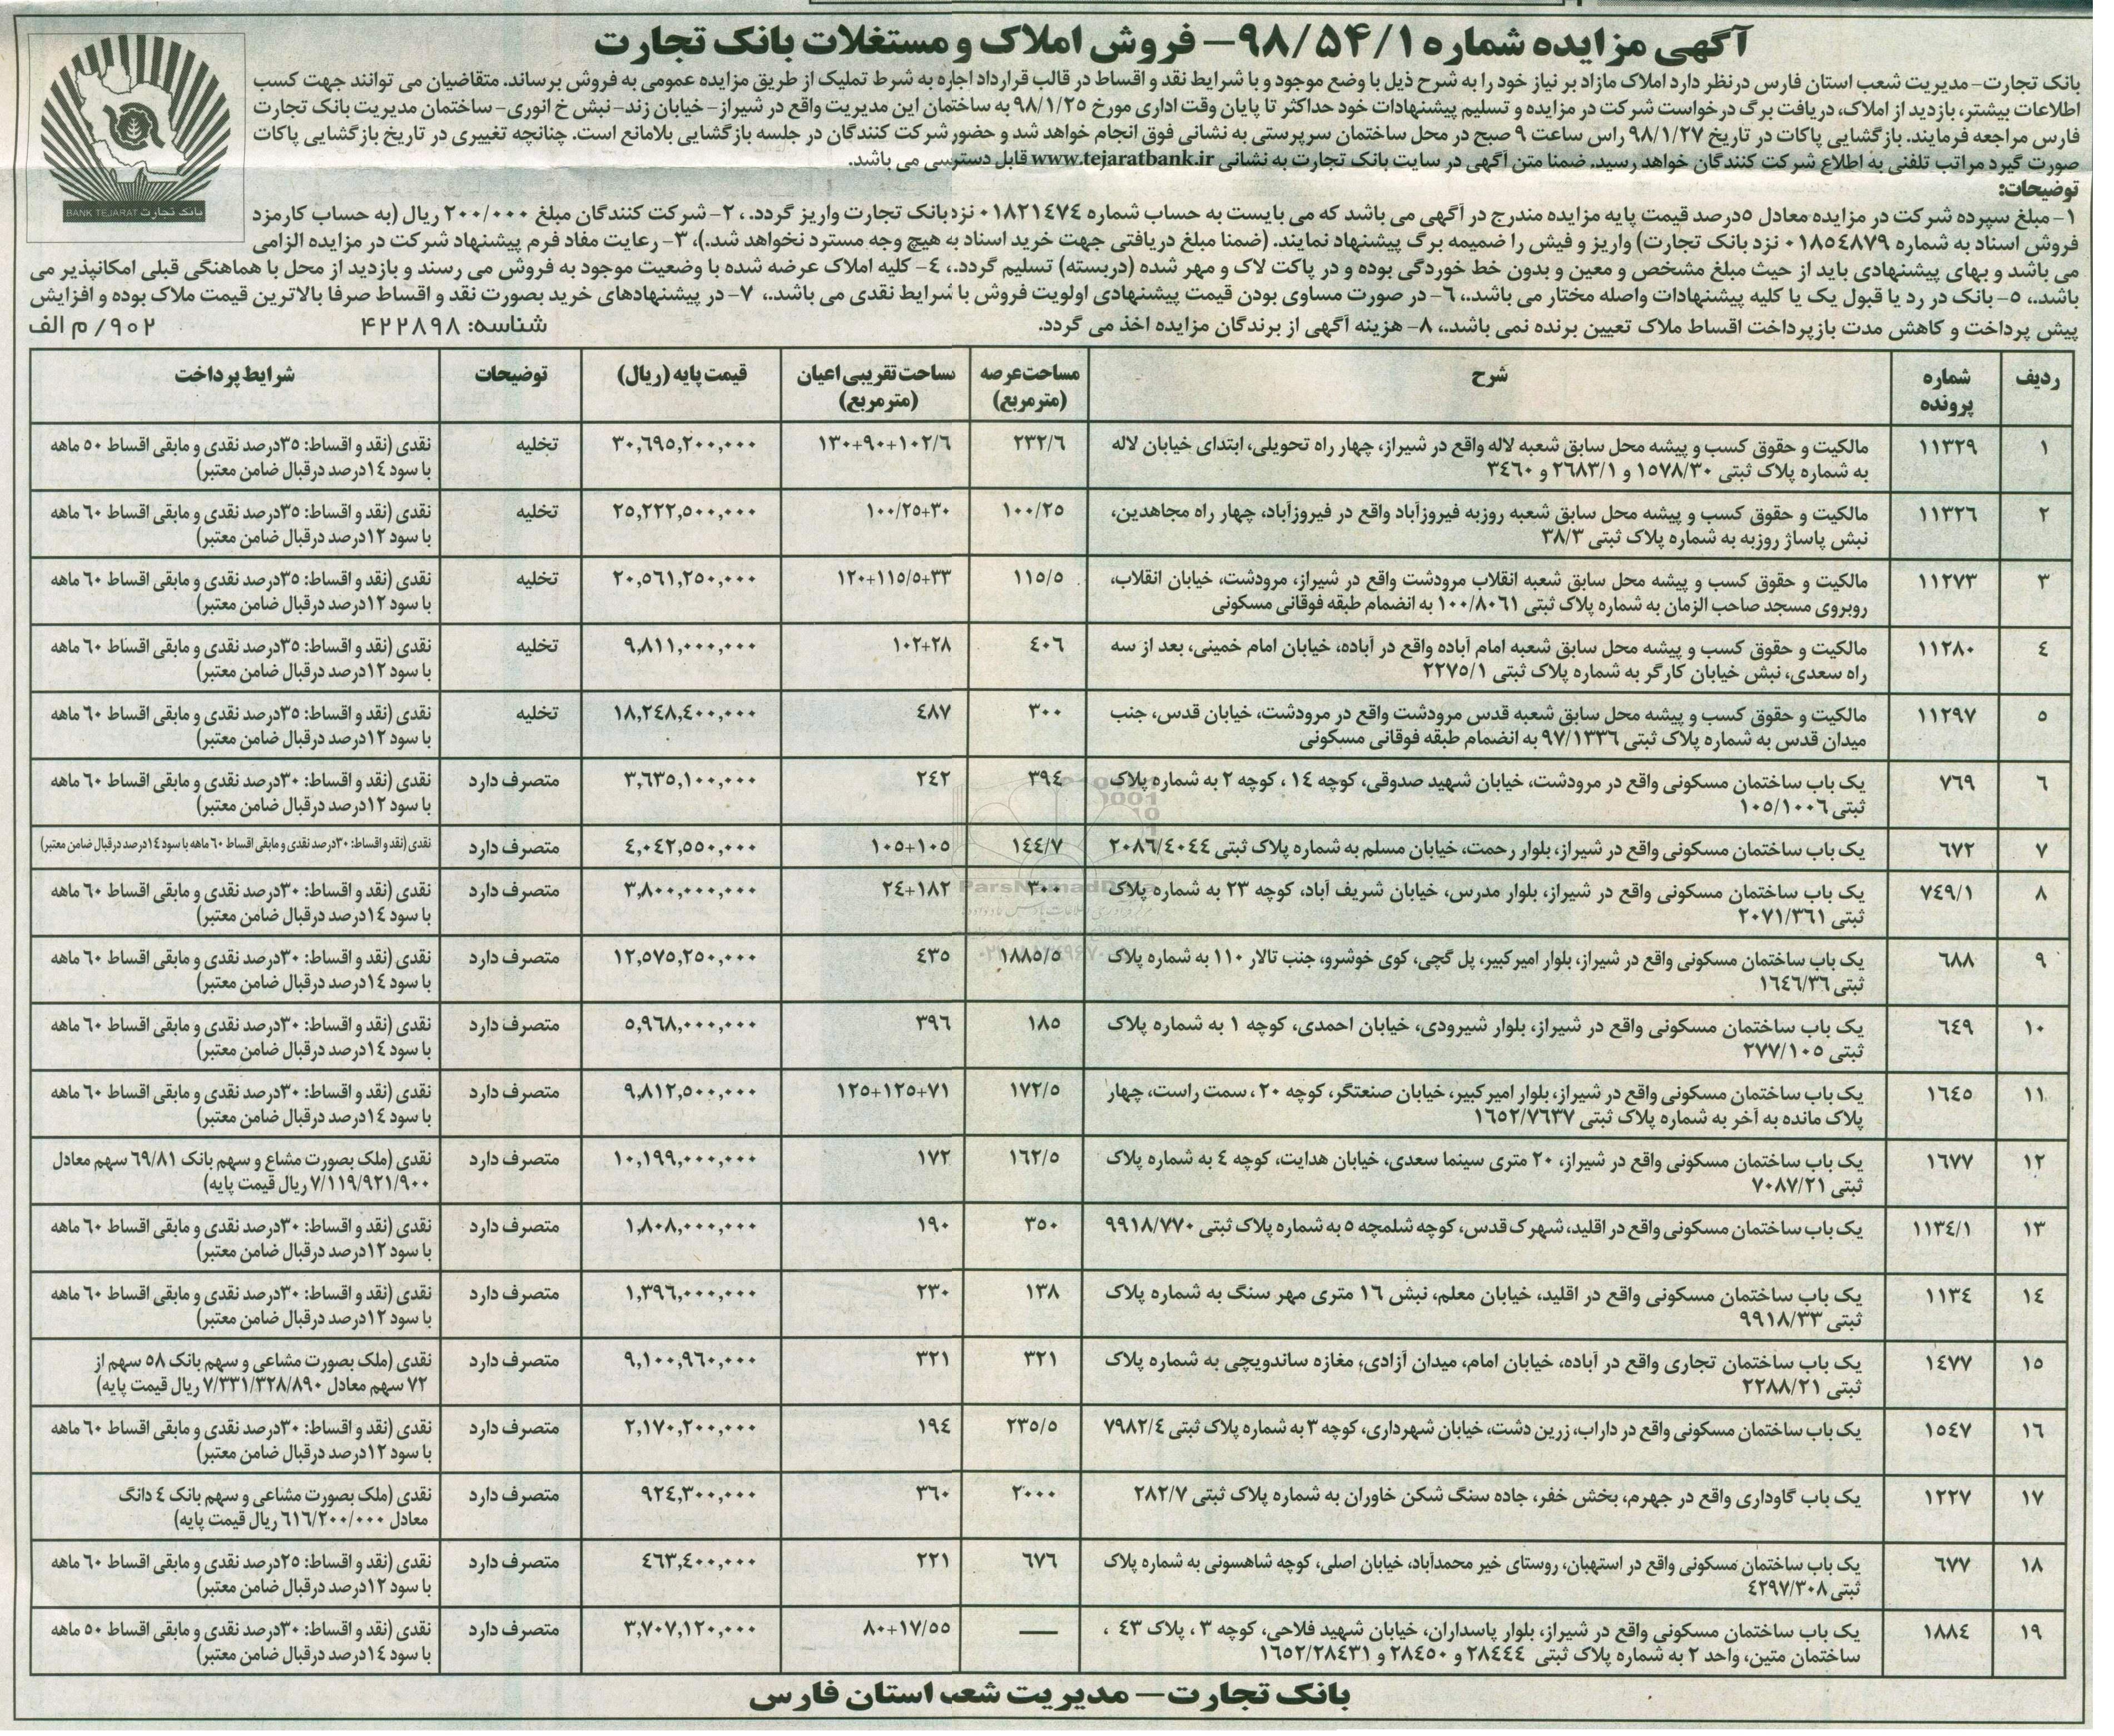 آگهی مزایده شماره ۹۸/۵۴/۱- فروش املاک و مستغلات بانک تجارت
بانک تجارت- مدیریت شعب استان فارس درنظر دارد املاک مازاد بر نیاز خود را به شرح ذیل با وضع موجود و با شرایط نقد و اقساط در قالب قرارداد اجاره به شرط تملیک از طریق مزایده عمومی به فروش برساند. متقاضیان می توانند جهت کسب
اطلاعات بیشتر، بازدید از املاک، دریافت برگ درخواست شرکت در مزایده و تسلیم پیشنهادات خود حداکثر تا پایان وقت اداری مورخ ۹۸/۱/۲۵ به ساختمان این مدیریت واقع در شیراز- خیابان زند- نبش خ انوری- ساختمان مدیریت بانک تجارت
فارس مراجعه فرمایند. بازگشایی پاکات در تاریخ ۹۸/۱/۲۷ راس ساعت ۹ صبح در محل ساختمان سرپرستی به نشانی فوق انجام خواهد شد و حضور شرکت کنندگان در جلسه بازگشایی بلامانع است. چنانچه تغییری در تاریخ بازگشایی پاکات
صورت گیرد مراتب تلفنی به اطلاع شرکت کنندگان خواهد رسید. ضمنا متن آگهی در سایت بانک تجارت به نشانی www.tejaratbank.ir قابل دسترسی می باشد.
BANK TEJARAT بانک تجارت
توضیحات:
۱- مبلغ سپرده شرکت در مزایده معادل ۵درصد قیمت پایه مزایده مندرج در آگهی می باشد که می بایست به حساب شماره ۰۱۸۲۱۴۷۴ نزد بانک تجارت واریز گردد.، ۲- شرکت کنندگان مبلغ ۲۰۰/۰۰۰ ریال (به حساب کارمزد
فروش اسناد به شماره ۰۱۸۵۴۸۷۹ نزد بانک تجارت) واریز و فیش را ضمیمه برگ پیشنهاد نمایند. (ضمنا مبلغ دریافتی جهت خرید اسناد به هیچ وجه مسترد نخواهد شد.)، ۳- رعایت مفاد فرم پیشنهاد شرکت در مزایده الزامی
می باشد و بهای پیشنهادی باید از حیث مبلغ مشخص و معین و بدون خط خوردگی بوده و در پاکت لاک و مهر شده (دربسته) تسلیم گردد.، ۴- کلیه املاک عرضه شده با وضعیت موجود به فروش می رسند و بازدید از محل با هماهنگی قبلی امکانپذیر می
باشد.، ۵- بانک در رد یا قبول یک یا کلیه پیشنهادات واصله مختار می باشد.، ۶- در صورت مساوی بودن قیمت پیشنهادی اولویت فروش با شرایط نقدی می باشد.، ۷- در پیشنهادهای خرید بصورت نقد و اقساط صرفا بالاترین قیمت ملاک بوده و افزایش
پیش پرداخت و کاهش مدت بازپرداخت اقساط ملاک تعیین برنده نمی باشد.، ۸- هزینه آگهی از برندگان مزایده اخذ می گردد. شناسه: ۴۲۲۸۹۸ ۹۰۲/ م الف
ردیف شماره پرونده شرح مساحت عرصه (مترمربع) مساحت تقریبی اعیان (مترمربع) قیمت پایه (ریال) توضیحات شرایط پرداخت
۱ ۱۱۳۲۹ مالکیت و حقوق کسب و پیشه محل سابق شعبه لاله واقع در شیراز، چهار راه تحویلی، ابتدای خیابان لاله ۲۳۲/۶ ۱۳۰+۹۰+۱۰۲/۶ ۳۰,۶۹۵,۲۰۰,۰۰۰ تخلیه نقدی (نقد و اقساط: ۳۵درصد نقدی و مابقی اقساط ۵۰ ماهه
به شماره پلاک ثبتی ۱۵۷۸/۳۰ و ۲۶۸۳/۱ و ۳۴۶۰ با سود ۱۴درصد درقبال ضامن معتبر)
۲ ۱۱۳۲۶ مالکیت و حقوق کسب و پیشه محل سابق شعبه روزبه فیروزآباد واقع در فیروزآباد، چهار راه مجاهدین، ۱۰۰/۲۵ ۱۰۰/۲۵+۳۰ ۲۵,۲۲۲,۵۰۰,۰۰۰ تخلیه نقدی (نقد و اقساط: ۳۵درصد نقدی و مابقی اقساط ۶۰ ماهه
نبش پاساژ روزبه به شماره پلاک ثبتی ۳۸/۳ با سود ۱۲درصد درقبال ضامن معتبر)
۳ ۱۱۲۷۳ مالکیت و حقوق کسب و پیشه محل سابق شعبه انقلاب مرودشت واقع در شیراز، مرودشت، خیابان انقلاب، ۱۱۵/۵ ۱۲۰+۱۱۵/۵+۳۳ ۲۰,۵۶۱,۲۵۰,۰۰۰ تخلیه نقدی (نقد و اقساط: ۳۵درصد نقدی و مابقی اقساط ۶۰ ماهه
روبروی مسجد صاحب الزمان به شماره پلاک ثبتی ۱۰۰/۸۰۶۱ به انضمام طبقه فوقانی مسکونی با سود ۱۲درصد درقبال ضامن معتبر)
۴ ۱۱۲۸۰ مالکیت و حقوق کسب و پیشه محل سابق شعبه امام آباده واقع در آباده، خیابان امام خمینی، بعد از سه ۴۰۶ ۱۰۲+۲۸ ۹,۸۱۱,۰۰۰,۰۰۰ تخلیه نقدی (نقد و اقساط: ۳۵درصد نقدی و مابقی اقساط ۶۰ ماهه
راه سعدی، نبش خیابان کارگر به شماره پلاک ثبتی ۲۲۷۵/۱ با سود ۱۲درصد درقبال ضامن معتبر)
۵ ۱۱۲۹۷ مالکیت و حقوق کسب و پیشه محل سابق شعبه قدس مرودشت واقع در مرودشت، خیابان قدس، جنب ۳۰۰ ۴۸۷ ۱۸,۲۴۸,۴۰۰,۰۰۰ تخلیه نقدی (نقد و اقساط: ۳۵درصد نقدی و مابقی اقساط ۶۰ ماهه
میدان قدس به شماره پلاک ثبتی ۹۷/۱۳۳۶ به انضمام طبقه فوقانی مسکونی با سود ۱۲درصد درقبال ضامن معتبر)
۶ ۷۶۹ یک باب ساختمان مسکونی واقع در مرودشت، خیابان شهید صدوقی، کوچه ۱۴ ، کوچه ۲ به شماره پلاک ۳۹۴ ۲۴۲ ۳,۶۳۵,۱۰۰,۰۰۰ متصرف دارد نقدی (نقد و اقساط: ۳۰درصد نقدی و مابقی اقساط ۶۰ ماهه
ثبتی ۱۰۵/۱۰۰۶ با سود ۱۲درصد درقبال ضامن معتبر)
۷ ۶۷۲ یک باب ساختمان مسکونی واقع در شیراز، بلوار رحمت، خیابان مسلم به شماره پلاک ثبتی ۲۰۸۶/۴۰۴۴ ۱۴۴/۷ ۱۰۵+۱۰۵ ۴,۰۴۲,۵۵۰,۰۰۰ متصرف دارد نقدی (نقد و اقساط: ۳۰درصد نقدی و مابقی اقساط ۶۰ ماهه با سود ۱۴درصد درقبال ضامن معتبر)
۸ ۷۴۹/۱ یک باب ساختمان مسکونی واقع در شیراز، بلوار مدرس، خیابان شریف آباد، کوچه ۲۳ به شماره پلاک ۳۰۰ ۲۴+۱۸۲ ۳,۸۰۰,۰۰۰,۰۰۰ متصرف دارد نقدی (نقد و اقساط: ۳۰درصد نقدی و مابقی اقساط ۶۰ ماهه
ثبتی ۲۰۷۱/۳۶۱ با سود ۱۴درصد درقبال ضامن معتبر)
۹ ۶۸۸ یک باب ساختمان مسکونی واقع در شیراز، بلوار امیرکبیر، پل گچی، کوی خوشرو، جنب تالار ۱۱۰ به شماره پلاک ۱۸۸۵/۵ ۴۳۵ ۱۲,۵۷۵,۲۵۰,۰۰۰ متصرف دارد نقدی (نقد و اقساط: ۳۰درصد نقدی و مابقی اقساط ۶۰ ماهه
ثبتی ۱۶۴۶/۳۶ با سود ۱۴درصد درقبال ضامن معتبر)
۱۰ ۶۴۹ یک باب ساختمان مسکونی واقع در شیراز، بلوار شیرودی، خیابان احمدی، کوچه ۱ به شماره پلاک ۱۸۵ ۳۹۶ ۵,۹۶۸,۰۰۰,۰۰۰ متصرف دارد نقدی (نقد و اقساط: ۳۰درصد نقدی و مابقی اقساط ۶۰ ماهه
ثبتی ۲۷۷/۱۰۵ با سود ۱۴درصد درقبال ضامن معتبر)
۱۱ ۱۶۴۵ یک باب ساختمان مسکونی واقع در شیراز، بلوار امیرکبیر، خیابان صنعتگر، کوچه ۲۰ ، سمت راست، چهار ۱۷۲/۵ ۱۲۵+۱۲۵+۷۱ ۹,۸۱۲,۵۰۰,۰۰۰ متصرف دارد نقدی (نقد و اقساط: ۳۰درصد نقدی و مابقی اقساط ۶۰ ماهه
پلاک مانده به آخر به شماره پلاک ثبتی ۱۶۵۲/۷۶۳۷ با سود ۱۴درصد درقبال ضامن معتبر)
۱۲ ۱۶۷۷ یک باب ساختمان مسکونی واقع در شیراز، ۲۰ متری سینما سعدی، خیابان هدایت، کوچه ۴ به شماره پلاک ۱۶۲/۵ ۱۷۲ ۱۰,۱۹۹,۰۰۰,۰۰۰ متصرف دارد نقدی (ملک بصورت مشاع و سهم بانک ۶۹/۸۱ سهم معادل
ثبتی ۷۰۸۷/۲۱ ۷/۱۱۹/۹۲۱/۹۰۰ ریال قیمت پایه)
۱۳ ۱۱۳۴/۱ یک باب ساختمان مسکونی واقع در اقلید، شهرک قدس، کوچه شلمچه ۵ به شماره پلاک ثبتی ۹۹۱۸/۷۷۰ ۳۵۰ ۱۹۰ ۱,۸۰۸,۰۰۰,۰۰۰ متصرف دارد نقدی (نقد و اقساط: ۳۰درصد نقدی و مابقی اقساط ۶۰ ماهه
با سود ۱۲درصد درقبال ضامن معتبر)
۱۴ ۱۱۳۴ یک باب ساختمان مسکونی واقع در اقلید، خیابان معلم، نبش ۱۶ متری مهر سنگ به شماره پلاک ۱۳۸ ۲۳۰ ۱,۳۹۶,۰۰۰,۰۰۰ متصرف دارد نقدی (نقد و اقساط: ۳۰درصد نقدی و مابقی اقساط ۶۰ ماهه
ثبتی ۹۹۱۸/۳۳ با سود ۱۲درصد درقبال ضامن معتبر)
۱۵ ۱۴۷۷ یک باب ساختمان تجاری واقع در آباده، خیابان امام، میدان آزادی، مغازه ساندویچی به شماره پلاک ۳۲۱ ۳۲۱ ۹,۱۰۰,۹۶۰,۰۰۰ متصرف دارد نقدی (ملک بصورت مشاعی و سهم بانک ۵۸ سهم از
ثبتی ۲۲۸۸/۲۱ ۷۲ سهم معادل ۷/۳۳۱/۳۲۸/۸۹۰ ریال قیمت پایه)
۱۶ ۱۵۴۷ یک باب ساختمان مسکونی واقع در داراب، زرین دشت، خیابان شهرداری، کوچه ۳ به شماره پلاک ثبتی ۷۹۸۲/۴ ۲۳۵/۵ ۱۹۴ ۲,۱۷۰,۲۰۰,۰۰۰ متصرف دارد نقدی (نقد و اقساط: ۳۰درصد نقدی و مابقی اقساط ۶۰ ماهه
با سود ۱۲درصد درقبال ضامن معتبر)
۱۷ ۱۲۲۷ یک باب گاوداری واقع در جهرم، بخش خفر، جاده سنگ شکن خاوران به شماره پلاک ثبتی ۲۸۲/۷ ۲۰۰۰ ۳۶۰ ۹۲۴,۳۰۰,۰۰۰ متصرف دارد نقدی (ملک بصورت مشاعی و سهم بانک ۴ دانگ
معادل ۶۱۶/۲۰۰/۰۰۰ ریال قیمت پایه)
۱۸ ۶۷۷ یک باب ساختمان مسکونی واقع در استهبان، روستای خیر محمدآباد، خیابان اصلی، کوچه شاهسونی به شماره پلاک ۶۷۶ ۲۲۱ ۴۶۳,۴۰۰,۰۰۰ متصرف دارد نقدی (نقد و اقساط: ۲۵درصد نقدی و مابقی اقساط ۶۰ ماهه
ثبتی ۴۲۹۷/۳۰۸ با سود ۱۲درصد درقبال ضامن معتبر)
۱۹ ۱۸۸۴ یک باب ساختمان مسکونی واقع در شیراز، بلوار پاسداران، خیابان شهید فلاحی، کوچه ۳ ، پلاک ۴۳ ، — ۸۰+۱۷/۵۵ ۳,۷۰۷,۱۲۰,۰۰۰ متصرف دارد نقدی (نقد و اقساط: ۳۰درصد نقدی و مابقی اقساط ۵۰ ماهه
ساختمان متین، واحد ۲ به شماره پلاک ثبتی ۲۸۴۴۴ و ۲۸۴۵۰ و ۱۶۵۲/۲۸۴۳۱ با سود ۱۴درصد درقبال ضامن معتبر)
بانک تجارت- مدیریت شعب استان فارس